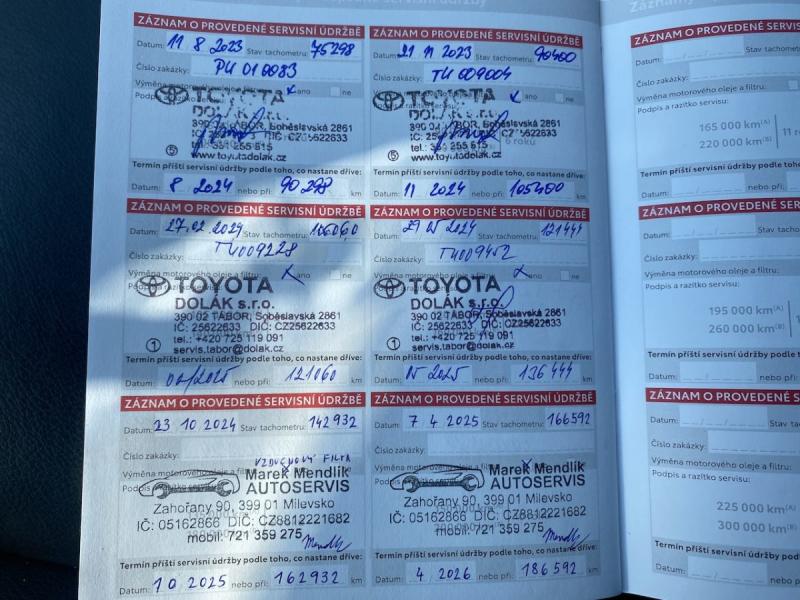 ZÁZNAM O PROVEDENÉ SERVISNÍ ÚDRŽBĚ
Datum: 11 8 2023 Stav tachometru: 75298 km
Číslo zakázky:
Výměna motorového oleje a filtru: ano ne
Podpis a razítko servisu:
TOYOTA
DOLÁK s.r.o.
390 02 TÁBOR, Soběslavská 2861
5
www.toyotadolak.cz
Termín příští servisní údržby podle toho, co nastane dříve:
Datum: 8 2024 nebo při: 90 298 km
ZÁZNAM O PROVEDENÉ SERVISNÍ ÚDRŽBĚ
Datum: 21 11 2023 Stav tachometru: 90400 km
Číslo zakázky: TU 009004
Výměna motorového oleje a filtru: ano ne
TOYOTA
DOLÁK s.r.o.
390 02 TÁBOR, Soběslavská 2861
5
www.toyotadolak.cz
Termín příští servisní údržby podle toho, co nastane dříve:
Datum: 11 2024 nebo při: 105400 km
ZÁZNAM O PROVEDENÉ SERVISNÍ ÚDRŽBĚ
Datum: 27 02 2024 Stav tachometru:
Číslo zakázky: TU009228
Výměna motorového oleje a filtru: ano ne
TOYOTA
DOLÁK s.r.o.
390 02 TÁBOR, Soběslavská 2861
IČ: 25622633 DIČ: CZ25622633
1
tel.: +420 725 119 091
servis.tabor@dolak.cz
Termín příští servisní údržby podle toho, co nastane dříve:
Datum: 02/2025 nebo při: 121060 km
ZÁZNAM O PROVEDENÉ SERVISNÍ ÚDRŽBĚ
Datum: 29 05 2024 Stav tachometru: 121444 km
Číslo zakázky: TU009452
Výměna motorového oleje a filtru: ano ne
TOYOTA
DOLÁK s.r.o.
390 02 TÁBOR, Soběslavská 2861
IČ: 25622633 DIČ: CZ25622633
1
tel.: +420 725 119 091
servis.tabor@dolak.cz
Termín příští servisní údržby podle toho, co nastane dříve:
Datum: 05 2025 nebo při: 136444 km
ZÁZNAM O PROVEDENÉ SERVISNÍ ÚDRŽBĚ
Datum: 23 10 2024 Stav tachometru: 142932 km
Číslo zakázky:
VZDUCHOVÝ FILTR
Výměna motorového oleje a filtru:
Marek Mendlík
AUTOSERVIS
Zahořany 90, 399 01 Milevsko
IČ: 05162866 DIČ: CZ8812221682
mobil: 721 359 275
Termín příští servisní údržby podle toho, co nastane dříve:
Datum: 10 2025 nebo při: 162932 km
ZÁZNAM O PROVEDENÉ SERVISNÍ ÚDRŽBĚ
Datum: 7 4 2025 Stav tachometru: 166592 km
Číslo zakázky:
Výměna motorového oleje a filtru:
Marek Mendlík
AUTOSERVIS
Zahořany 90, 399 01 Milevsko
IČ: 05162866 DIČ: CZ8812221682
mobil: 721 359 275
Termín příští servisní údržby podle toho, co nastane dříve:
Datum: 4 2026 nebo při: 186 592 km
ZÁZNAM O PROVEDENÉ
Datum:
Číslo zakázky:
Výměna motorového oleje a
Podpis a razítko servisu:
165 000 km(A)
220 000 km(B)
Termín příští servisní údržby
Datum:
ZÁZNAM O PROVEDENÉ
Datum:
Číslo zakázky:
Výměna motorového oleje a
Podpis a razítko servisu:
195 000 km(A)
260 000 km(B)
Termín příští servisní údržby
Datum:
ZÁZNAM O PROVEDENÉ
Datum:
Číslo zakázky:
Výměna motorového oleje a
Podpis a razítko servisu:
225 000 km(A)
300 000 km(B)
Termín příští servisní údržby
Datum: